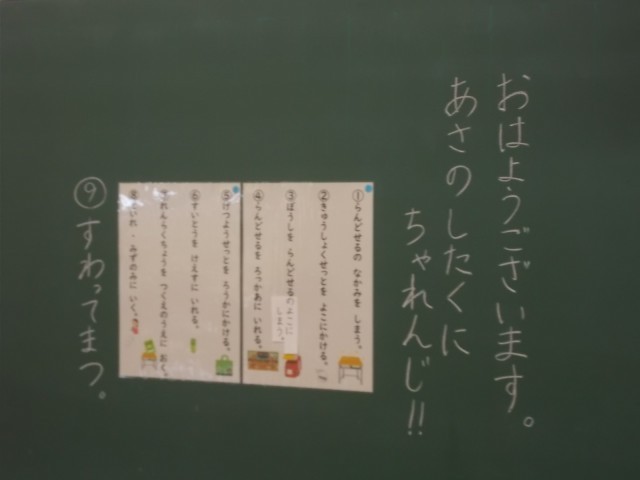 おはようございます。
あさのしたくに
ちゃれんじ!!
①らんどせるの なかみを しまう。
②きゅうしょくせっとを よこにかける。
③ぼうしを らんどせるのよこに
しまう。
④らんどせるを ろっかあに いれる。
⑤げつようせっとを ろうかにかける。
⑥すいとうを けえすに いれる。
⑦れんらくちょうを つくえのうえに おく。
⑧といれ・みずのみに いく。
⑨すわってまつ。